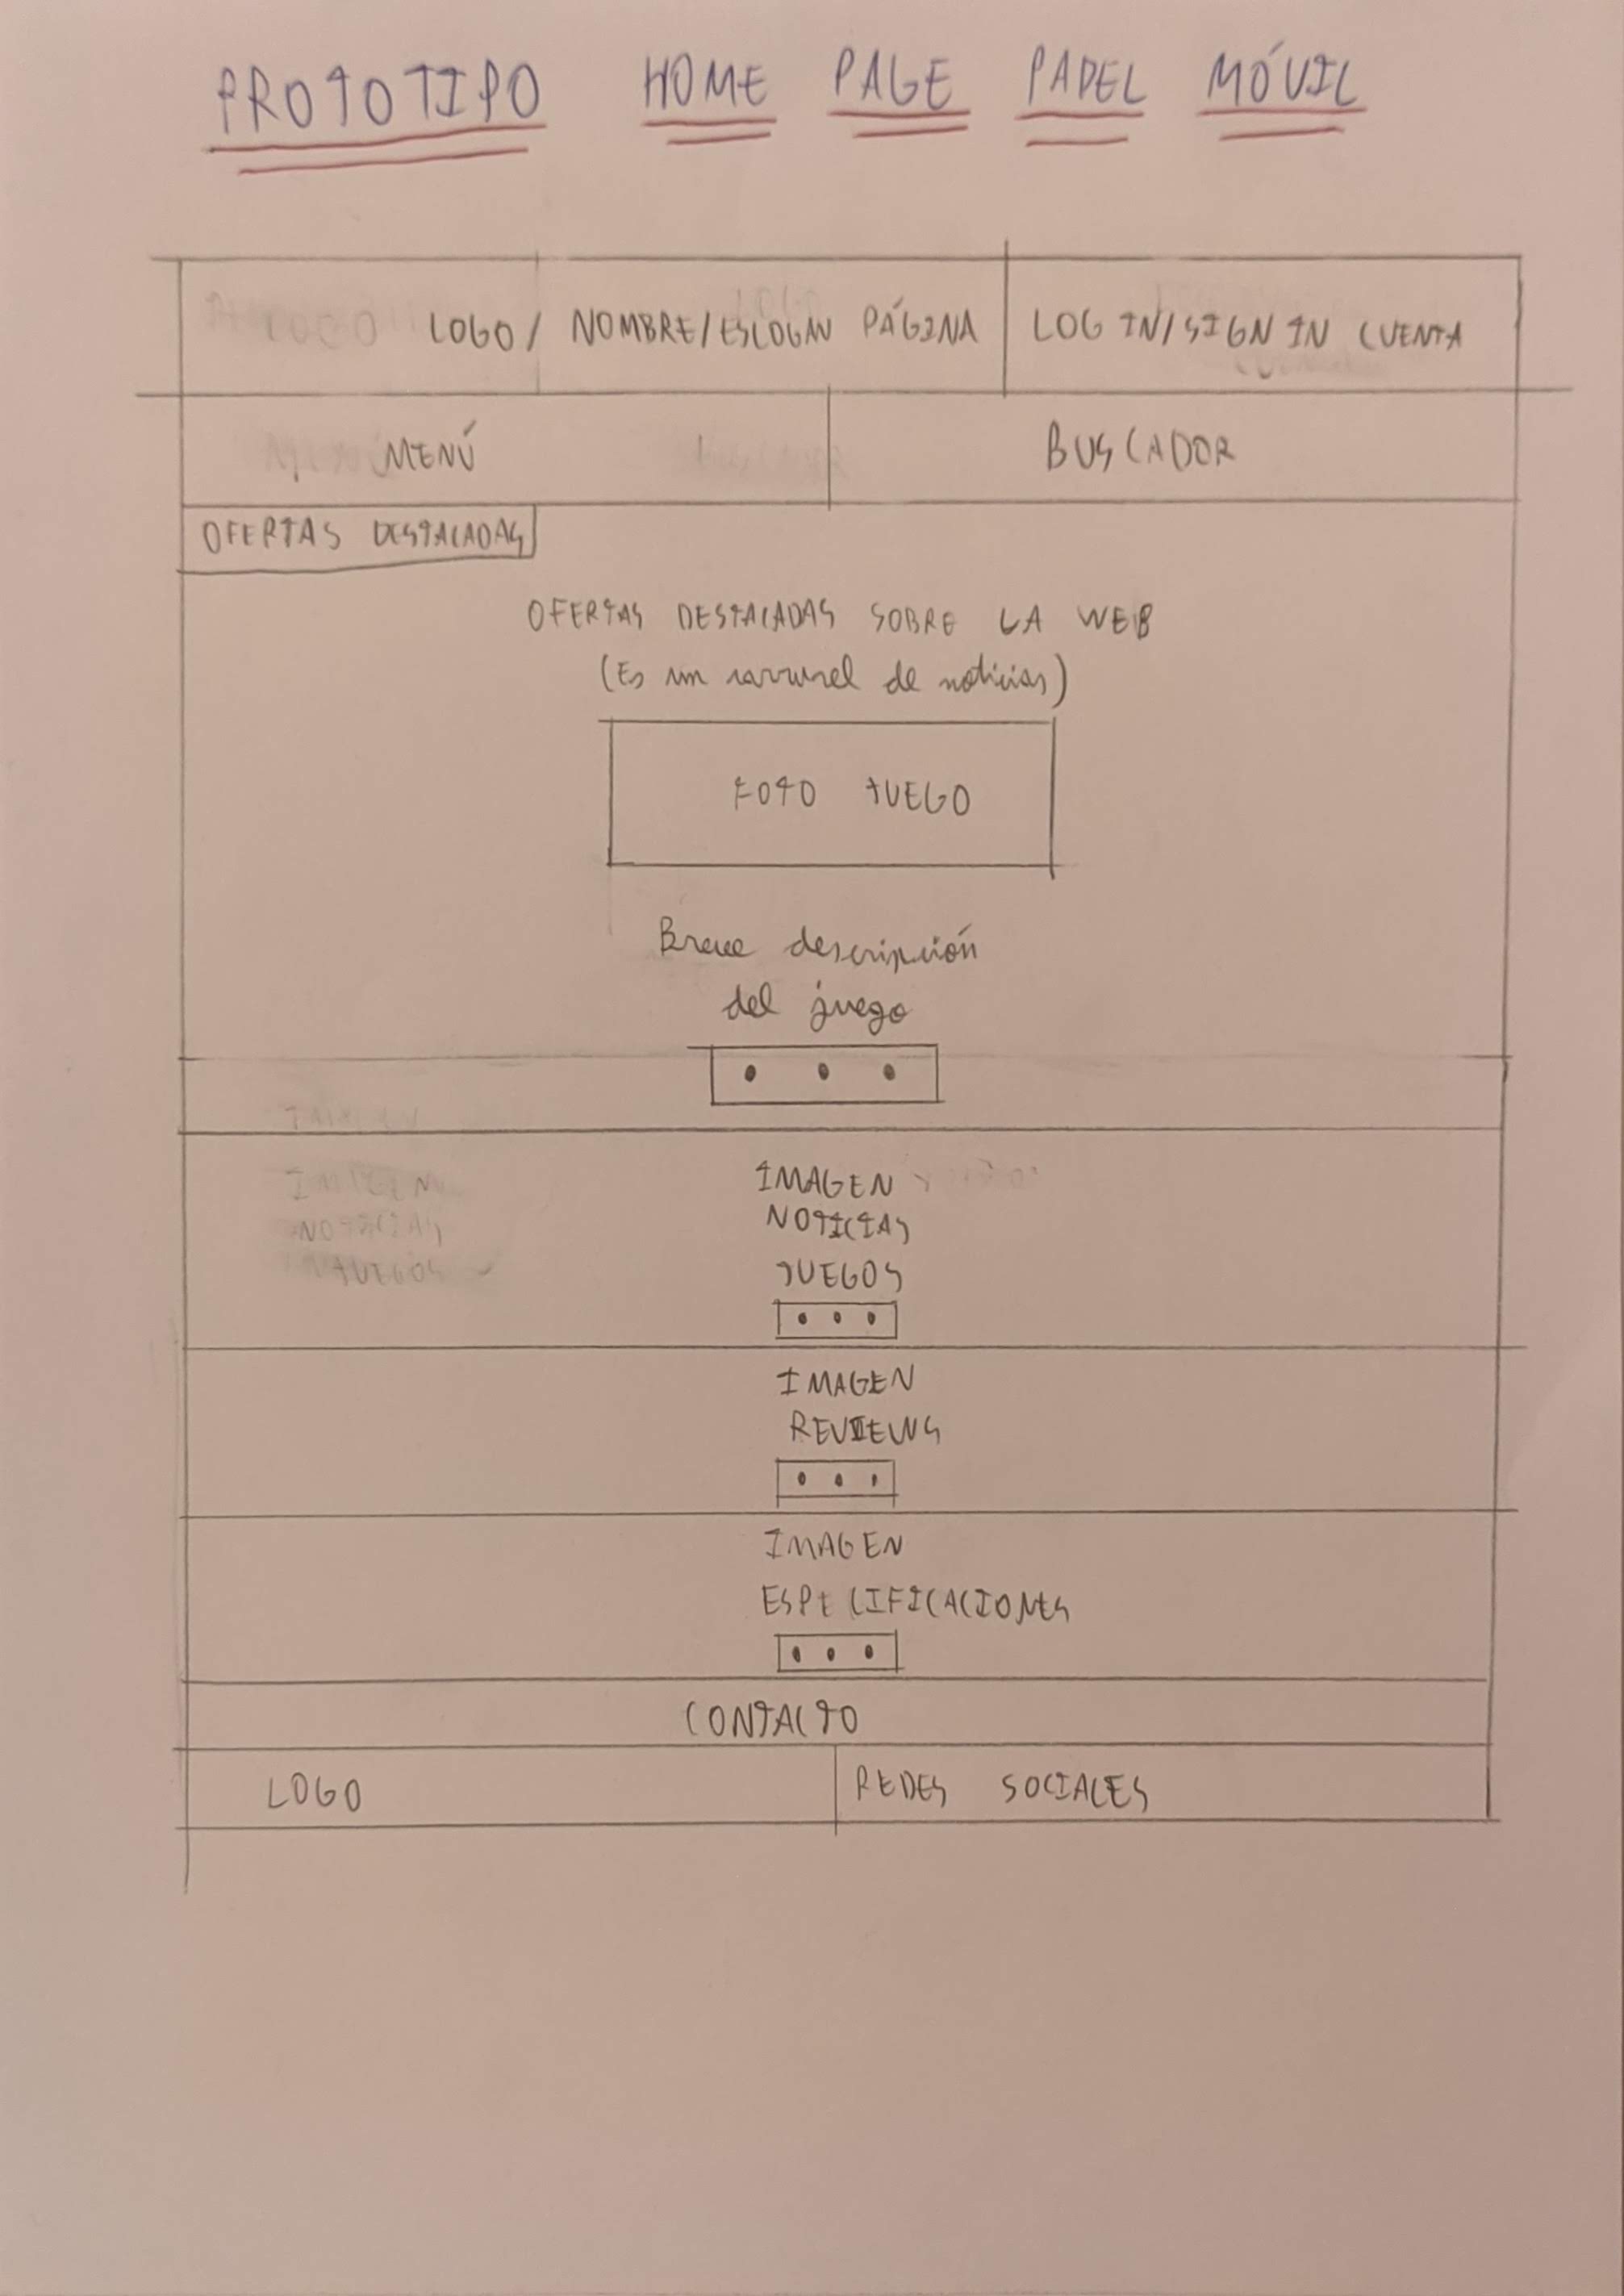 PROTOTIPO HOME PAGE PAPEL MÓVIL
LOGO / NOMBRE/ESLOGAN PÁGINA
LOG IN/SIGN IN CUENTA
MENÚ
BUSCADOR
OFERTAS DESTACADAS
OFERTAS DESTACADAS SOBRE LA WEB
(Es un carrusel de noticias)
FOTO JUEGO
Breve descripción
del juego
IMAGEN
NOTICIAS
JUEGOS
IMAGEN
REVIEWS
IMAGEN
ESPECIFICACIONES
CONTACTO
LOGO
REDES SOCIALES